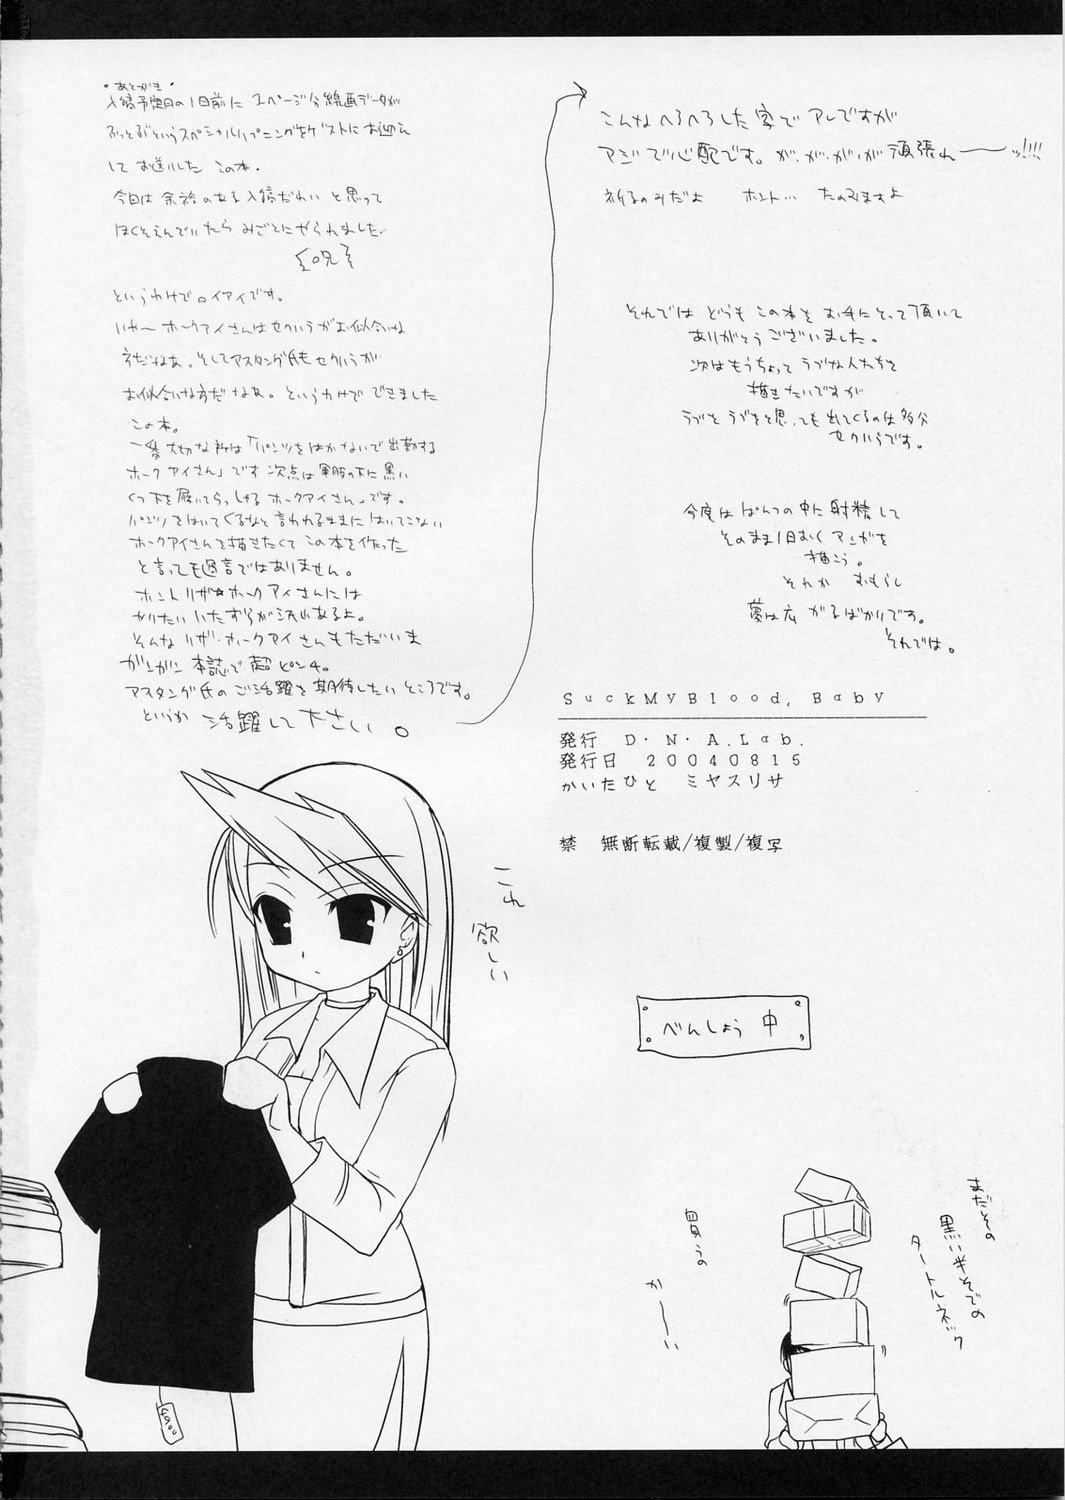 ・あとがき・
入稿予定日の1日前に 1ページ分線画データが
ぶっとぶというスペシャルハプニングをゲストにお迎え
して お送りした この本。
今日は 余裕のある入稿だわい と思って
ほくそえんでいたら みごとにやられました。
というわけでロイアイです。
いや〜 ホークアイさんはセクハラがお似合いな
方だなあ。そしてマスタング氏もセクハラが
お似合いな方だ なあ。というわけで できました
この本。
一番大切な所は「パンツをはかないで出勤する
ホークアイさん」です 次点は軍服の下に黒い
くつ下を履いてらっしゃる ホークアイさん」です。
パンツをはいてくるなと言われるままに はいてこない
ホークアイさんを描きたくて この本を作った
と言っても過言ではありません。
ホント リザ☆ホークアイさんには
かりたい いたずらが沢山あるよ。
そんな リザ・ホークアイさんもただいま
ガンガン 本誌で 超 ピンチ。
マスタング氏の ご活躍を期待したい ところです。
というか 活躍して下さい。
こんな へろへろした 字で アレですが
マジで心配です。が、が、が、が 頑張れ──ッ!!!!
祈るのみだよ ホント… たのみますよ
それでは どうも この本を お手にとって頂いて
ありがとうございました。
次はもうちょっと ラブな人たちを
描きたいですが
ラブを ラブをと思っても 出てくるのは多分
セクハラです。
今度は ぱんつの中に射精して
そのまま1日おく マンガを
描こう。
それか おもらし
夢は広 がるばかりです。
それでは。
SuckMyBlood, Baby
発行 D・N・A.Lab.
発行日 20040815
かいたひと ミヤスリサ
禁 無断転載/複製/複写
これ
欲しい
べんしょう 中
まだその
黒い半そでの
タートルネック
買うの
か──い